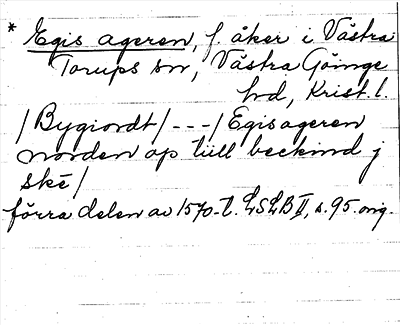 * Egis ageren, f. åker i Västra
Torups sn, Västra Göinge
hd, Krist. l.
/Bygiordt/---/Egisageren
norden op tiill beckind j
skē/
förra delen av 1570-t. LSLB II, s. 95. orig.